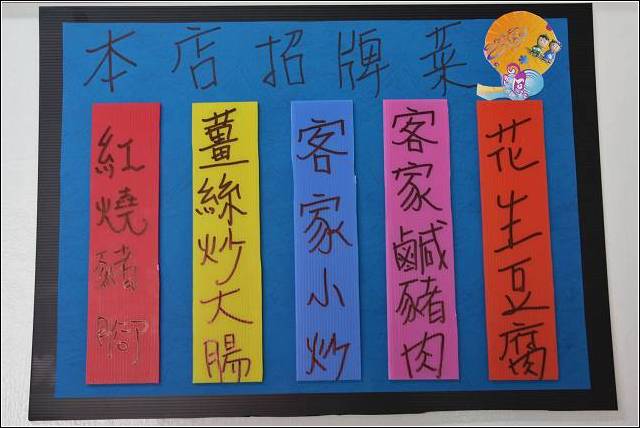 本店招牌菜
花生豆腐
客家鹹豬肉
客家小炒
薑絲炒大腸
紅燒豬腳